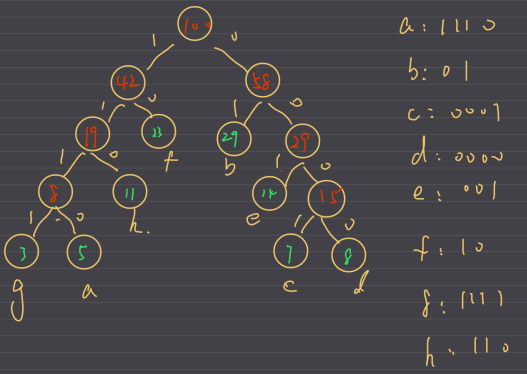 100
1 0
42 58
1 0 1 0
19 23 29 29
f b
1 0 1 0
8 11 14 15
h. e
1 0 1 0
3 5 7 8
g a c d
a: 1110
b: 01
c: 0001
d: 0000
e: 001
f: 10
g: 1111
h: 110